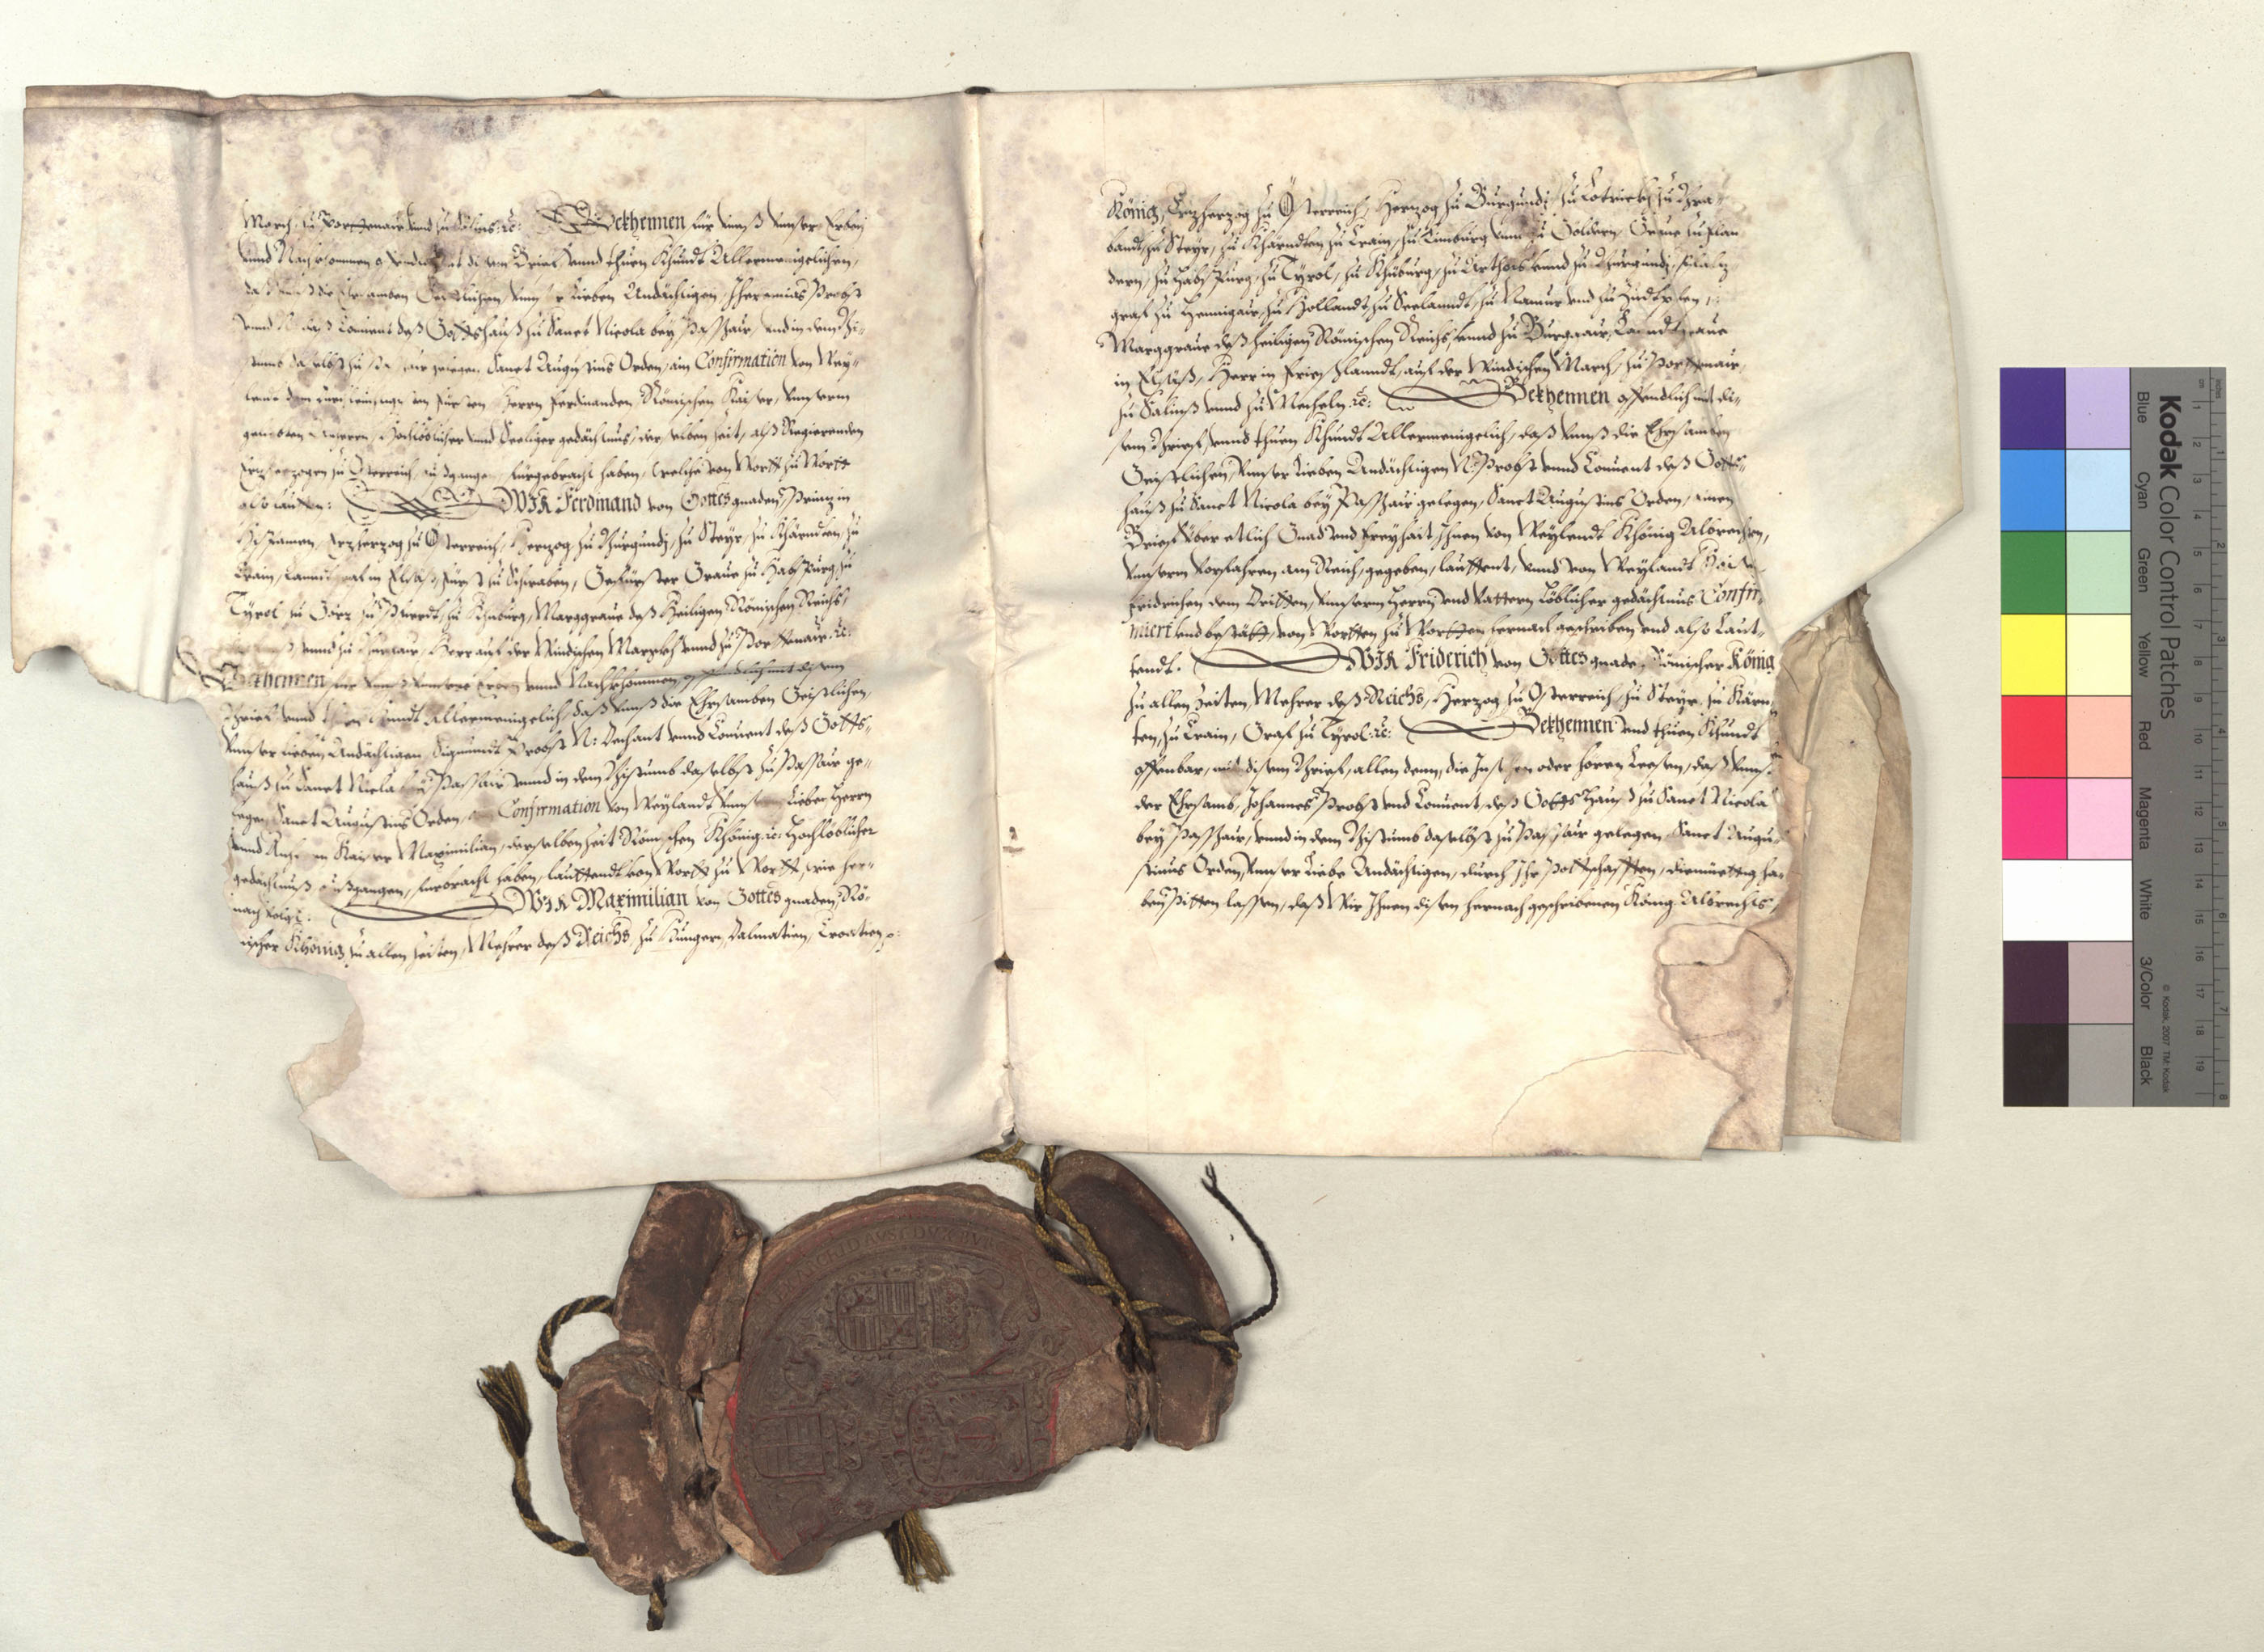 March, zu Porttenaw vnnd zu Salins, ꝛc: Bekhennen für vnnß vnnsere Erben
vnnd Nachkhommen offendlich mit disem Brieff vnnd thuen khundt Allermenigelichen,
daß vnnß die Ehrsamben Geistlichen, vnnser Lieben Andächtigen, Jheremias Probst
vnnd N: daß Conuent deß Gottshauß zu Sanct Nicola bey Passaw, vnd in dem Bi„
stumb daselbst zu Passaw gelegen Sanct Augustins Orden, ain Confirmation von Wey„
lendt dem Fürsten Herrn Ferdinanden Römischen Kaiser, vnnserm
geliebten Herrn, Hochlöblicher vnnd Seeliger gedächtnus, der selben zeit, alß Regierenden
Erzherzogen zu Österreich, außgangen, fürgebracht haben, welche von Wortt zu Wortt
also lautten: WIR Ferdinand von Gottes gnaden, Prinz in
Hispanien, Erzherzog zu Österreich, Herzog zu Burgundj, zu Steyr, zu Khärndten, zu
Crain, Lanndtgraf in Elsäß, Fürst zu Schwaben, Gefürster Graue zu Habspurg, zu
Tyrol, zu Görz zu Pfierdt, zu Khyburg, Marggraue deß Heiligen Römischen Reichs,
vnnd zu Burgaw, Herr auf der Windischen March vnnd zu Porttenaw ꝛc:
Bekhennen für vnnß vnnsere Erben vnnd Nachkhommen offendlich mit disem
Brieff vnnd thuen khundt Allermenigelich, daß vnnß die Ehrsamben Geistlichen,
vnnser lieben Andächtigen Sigmundt Probst N: Dechant vnnd Conuent deß Gotts„
hauß zu Sanct Nicola bey Passaw vnnd in dem Bistumb daselbst zu Passaw ge„
legen Sanct Augustins Orden, ain Confirmation von Weylandt vnnserm Lieben Herrn
vnnd Kaiser Maximilian, derselben zeit Römischen Khönig ꝛc: Hochlöblicher
gedächtnuß außgangen, fürbracht haben, lauttendt von Wortt zu Wortt, wie her„
nach volgt: WIR Maximilian von Gottes gnaden Rö„
mischer Khönig, zu allen zeitten, Mehrer deß Reichs, zu Hungern, Dalmatien, Croatien ꝛc:
König, Erzherzog zu Österreich, Herzog zu Burgundj, zu Lotrickh, zu Bra„
bandt, zu Steyr, zu Khärndten zu Crain, zu Limburg vnnd zu Geldern, Graue zu Flan„
dern, zu Habspurg, zu Tyrol, zu Khyburg, zu Arthois vnnd zu Burgundj, Pfallnz„
graf zu Hennigaw, zu Hollandt, zu Seelanndt, zu Namur vnd zu Zudtphen,
Marggraue deß Heiligen Römischen Reichs, vnnd zu Burgaw, Lanndtgraue
in Elsäß, Herr in Friesslanndt, auf der Windischen March, zu Porttenaw,
zu Salinß vnnd zu Mecheln ꝛc: Bekhennen offendlich mit di„
sem Brieff, vnnd thuen khundt Allermenigelich, daß vnnß die Ehrsamben
Geistlichen, vnnser Lieben Andächtigen N: Probst vnnd Conuent deß Gotts„
hauß zu Sanct Nicola bey Passaw gelegen, Sanct Augustins Orden, ainen
Brieff über etlich Gnad vnd Freyhait Ihnen von Weylendt Khönig Albrechten,
vnnserm Vorfahren am Reich, gegeben, lauttent, vnnd von Weylandt Kaiser
Fridrichen dem Dritten, vnnserm Herrn vnd Vattern Löblicher gedächtnus Confir„
miert vnd bestätt, von Wortten zu Wortten hernach geschriben vnd also Laut„
tendt. WIR Friderich von Gottes gnaden, Römischer König
zu allen zeitten Mehrer deß Reichs, Herzog zu Österreich, zu Steyr, zu Kärnn„
ten, zu Crain, Graf zu Tyrol ꝛc: Bekhennen vnd thuen khundt
offenbar, mit disem Brieff, allen denn, die Jn sehen oder hören Leesen, daß vnns
der Ehrsamb, Johannes Probst vnd Conuent, deß Gotts Hauß zu Sanct Nicola
bey Passaw, vnnd in dem Bistumb daselbst zu Passaw gelegen, Sanct Augu„
stinus Orden, vnnser Liebe Andächtigen, durch Jhr Pottschafften, diemüettig ha„
ben bitten lassen, daß Wir Jhnen disen hernach geschribenen König Albrechts,
Kodak Color Control Patches
© Kodak, 2007 TM: Kodak
Blue Cyan Green Yellow Red Magenta White 3/Color Black